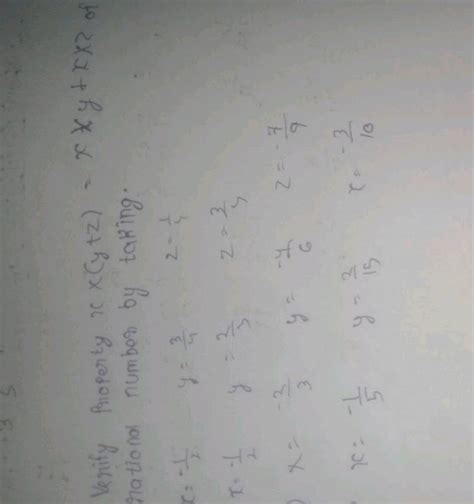 3 5
Verify Property x x(y+z) = x x y + x x z of
rational number by taking.
x = -1/2 y = 3/4 z = 1/4
x = -1/2 y = 2/3 z = 3/4
x = -2/3 y = -4/6 z = -7/9
x = -1/5 y = 2/15 x = -3/10